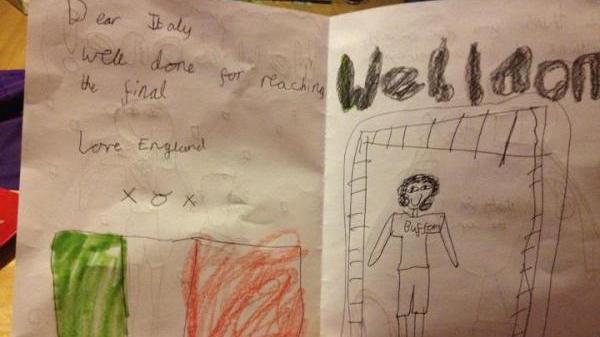 Dear Italy
Well done
for reaching
the final
Love England
x o x
Welldon
Buffon